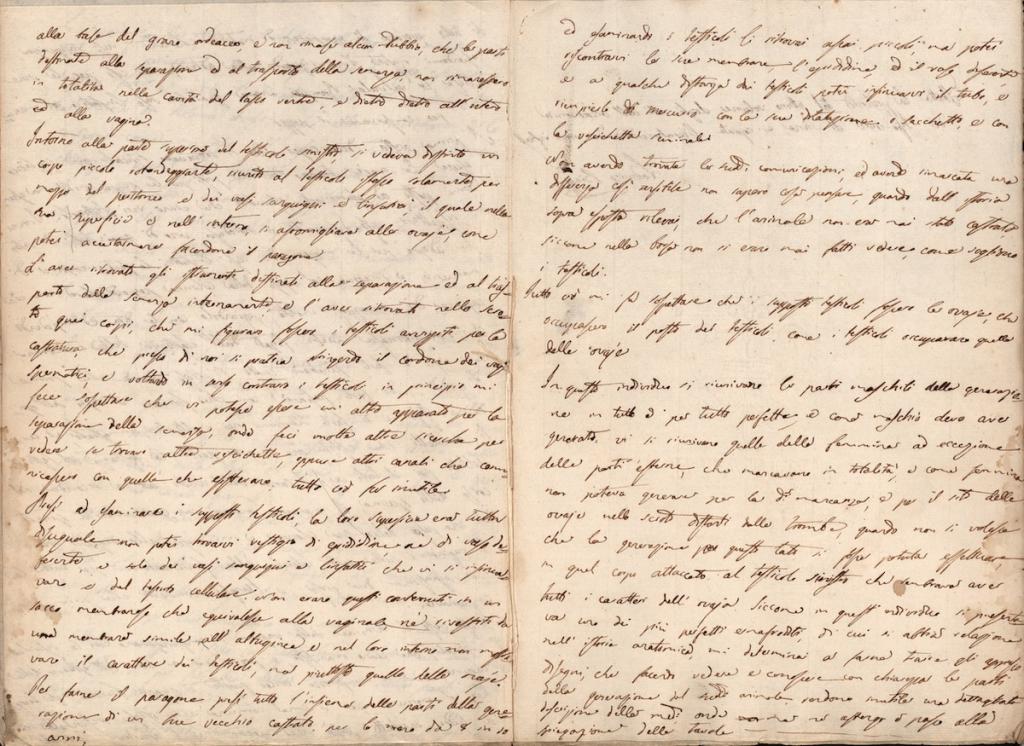 alla base del grano ordeaceo e non rimase alcun dubbio, che le parti
destinate alla separazione ed al trasporto della semenza non rimanessero
in totalità nella cavità del basso ventre, e dietro dietro all'utero
ed alla vagina.
Intorno alla parte superiore del testicolo sinistro si vedeva distinto un
corpo piccolo rotondeggiante, unito al testicolo istesso solamente per
mezzo del peritoneo e dei vasi sanguigni e linfatici il quale nella
sua superficie e nell'interno si assomigliava alle ovaje, come
potei accertarmene facendone il paragone
L'aver ritrovati gli strumenti destinati alla separazione ed al tras-
porto della semenza internamente, e l'aver ritrovati nello
quei corpi, che mi figuravo fossero i testicoli per la
castratura, che presso di noi si pratica stringendo il cordone dei vasi
spermatici, e voltando in senso contrario i testicoli, in principio mi
fece sospettare che vi potesse essere un altro apparato per la
separazione della semenza, onde feci molte altre ricerche per
vedere se trovavo altre vescichette, oppure altri canali che comu-
nicassero con quelle che esistevano, tutto ciò fu inutile
Presi ad esaminare i supposti testicoli, la loro superficie era tutta
disuguale non potei trovarvi vestigio di epididimo ne di vaso de-
ferente, e solo dei vasi sanguigni e linfatici che vi si insinua-
vano e del tessuto cellulare. Non erano questi contenuti in un
sacco membranoso che equivalesse alla vaginale, ne rivestiti da
una membrana simile all'albuginea e nel loro interno non mostra-
vano il carattere dei testicoli, ma piuttosto quello delle ovaje.
Per farne il paragone presi tutto l'insieme delle parti della gene-
razione di un bue vecchio castrato per lo meno da 8 in 10
anni,
ed esaminando i testicoli li ritrovai assai piccoli ma potei
riscontrarvi le sue membrane, l'epididimo, ed il vaso deferente
e a qualche distanza dai testicoli potei insinuarvi il tubo, e
riempirlo di mercurio con la sua dilatazione o sacchetto, e con
la vescichetta seminale
Non avendo trovate le sudd. comunicazioni, ed avendo rimarcata una
differenza così visibile non sapevo cosa pensare, quando dall'istoria
sopra esposta rilevai, che l'animale non era mai stato castrato
siccome nella borsa non si erano mai fatti vedere, come sogliono
i testicoli.
Tutto ciò mi fa sospettare che i supposti testicoli fossero le ovaje, che
occupassero il posto dei testicoli, come i testicoli occupavano quello
delle ovaje
In questo individuo si riunivano le parti maschili della generazio-
ne in tutto e per tutto perfette, e come maschio deve aver
generato. vi si riunivano quelle della femmina ad eccezione
delle parti esterne, che mancavano in totalità, e come femmina
non poteva generare per la d. mancanza, e per il sito delle
ovaje nello scroto distanti dalle trombe, quando non si volesse
che la generazione per questo lato si fosse potuta effettuare,
in quel corpo attaccato al testicolo sinistro che sembrava aver
tutti i caratteri dell'ovaja Siccome in quest'individuo si presenta-
va uno dei più perfetti ermafroditi, di cui si abbia relazione
nell'istoria anatomica, mi determinai a farne trarre gli
disegni, che facendo vedere e conoscere con chiarezza le parti
della generazione del sudd. animale rendono inutile una dettagliata
descrizione delle med. onde ne astengo e passo alla
spiegazione delle tavole